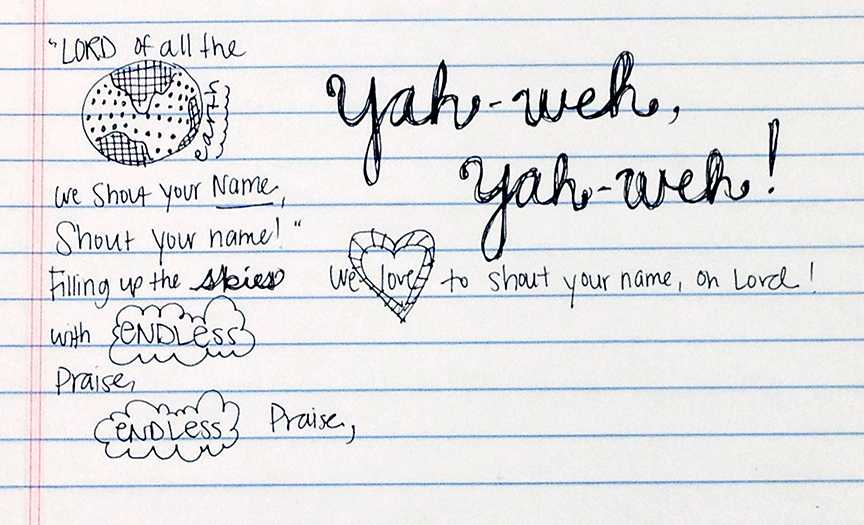 "LORD of all the
earth
we shout your Name,
Shout your name!"
Filling up the skies
with ENDLESS
Praise,
ENDLESS Praise,
Yah-weh,
Yah-weh!
We love to shout your name, oh Lord!